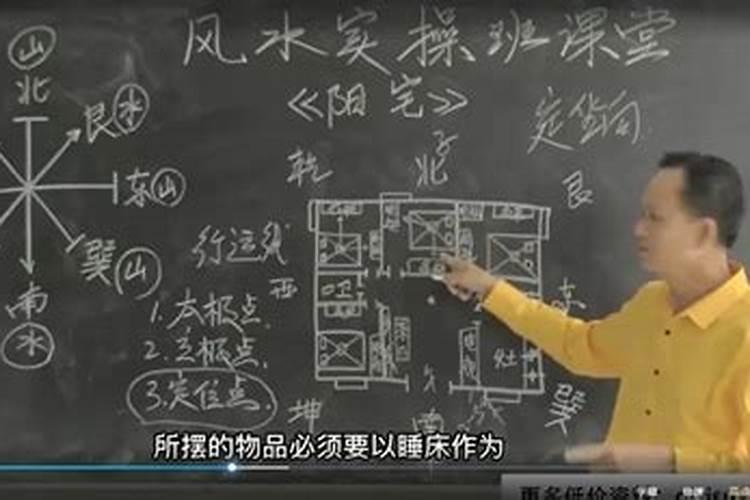 风水实操班课堂
《阳宅》
定坐向
山
北
艮水
东山
巽山
南
水
乾
子
北
艮
行运线
西
东
1.太极点.
2.立极点.
3.定位点.
卫
灶
坤
南
巽
所摆的物品必须要以睡床作为